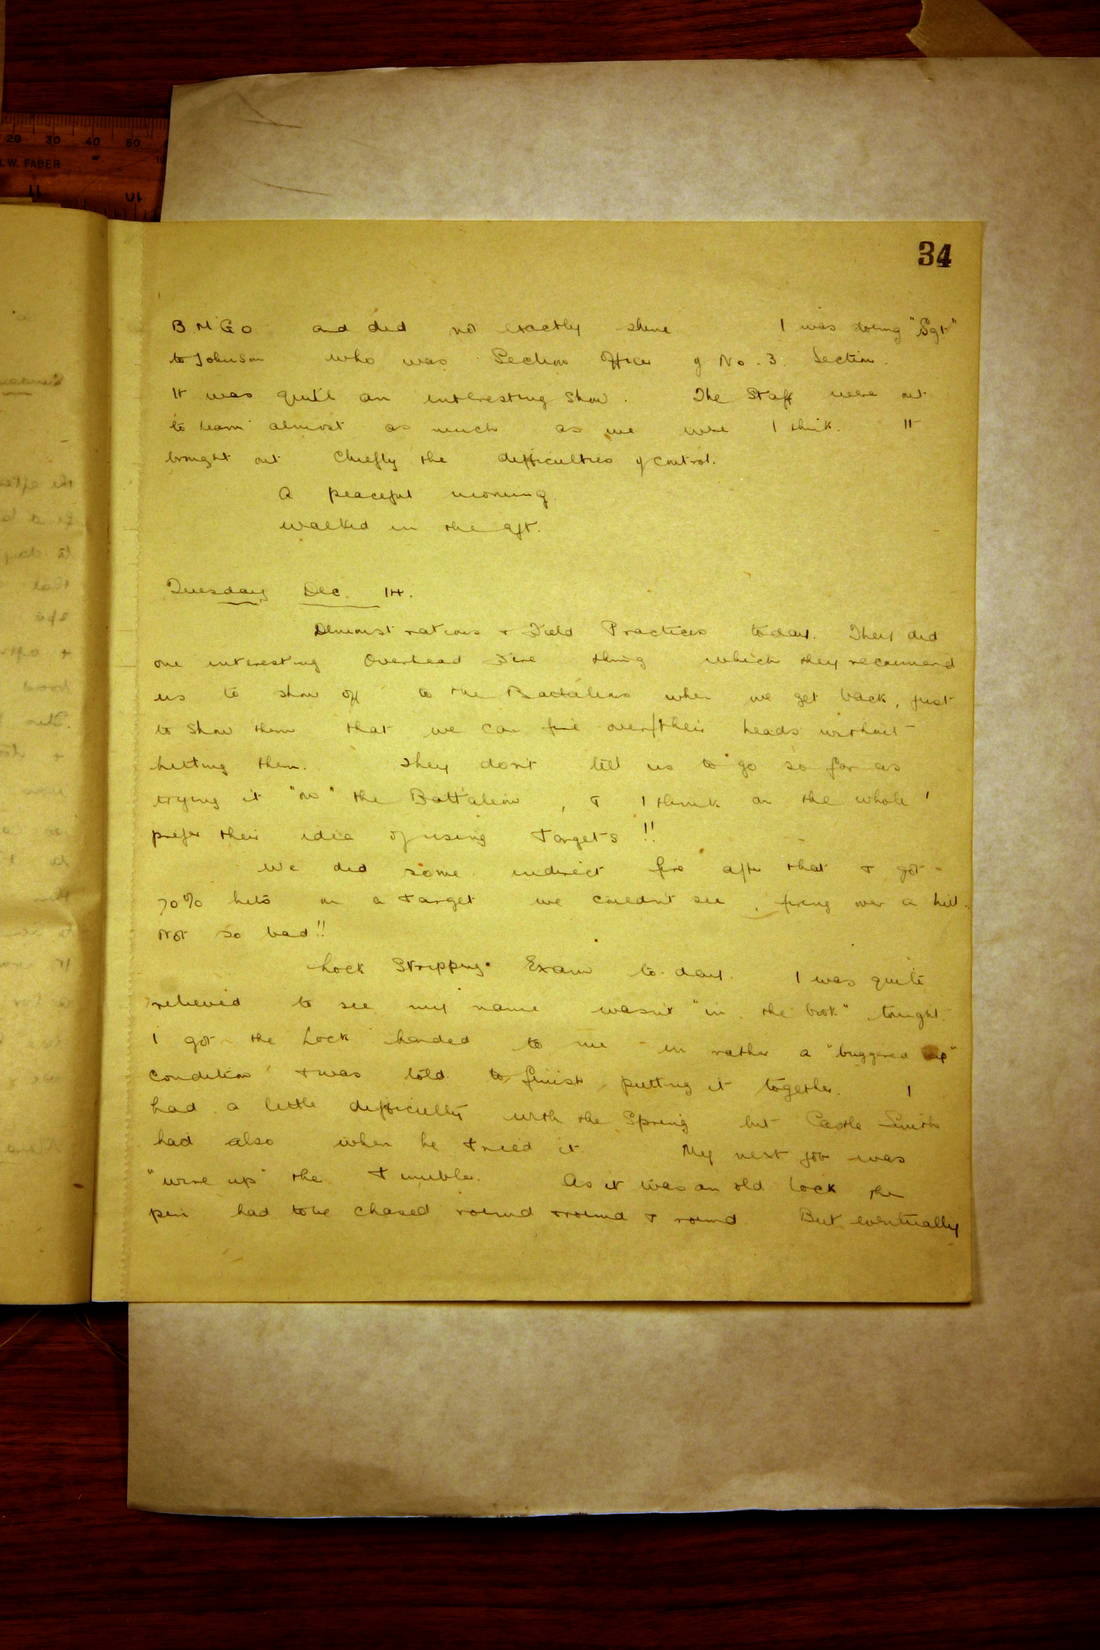 20 30 40 50
.W. FABER
34
B M G O and did not exactly shine I was doing "Sgt"
to Johnson who was Section Officer of No. 3. Section.
It was quite an interesting show. The Staff were out
to learn almost as much as we were I think. It
brought out chiefly the difficulties of control.
A peaceful morning
walked in the aft.
Tuesday Dec. 14.
Demonstrations & Field Practices today. They did
one interesting Overhead Fire thing which they recommend
us to show off to the Battalions when we get back, just
to show them that we can fire over their heads without
hitting them. They don't tell us to go so far as
trying it "on" the Battalion, & I think on the whole I
prefer their idea of using Targets !!
We did some indirect fire after that & got
70% hits on a target we couldn't see, firing over a hill.
Not so bad!!
Lock Stripping Exam to-day. I was quite
relieved to see my name wasn't "in the book" tonight.
I got the Lock handed to me in rather a "buggered up"
condition & was told to finish putting it together. I
had a little difficulty with the Spring but Castle Smith
had also when he tried it. My next job was
"wire up" the Tumbler. As it was an old lock the
pin had to be chased round & round & round But eventually